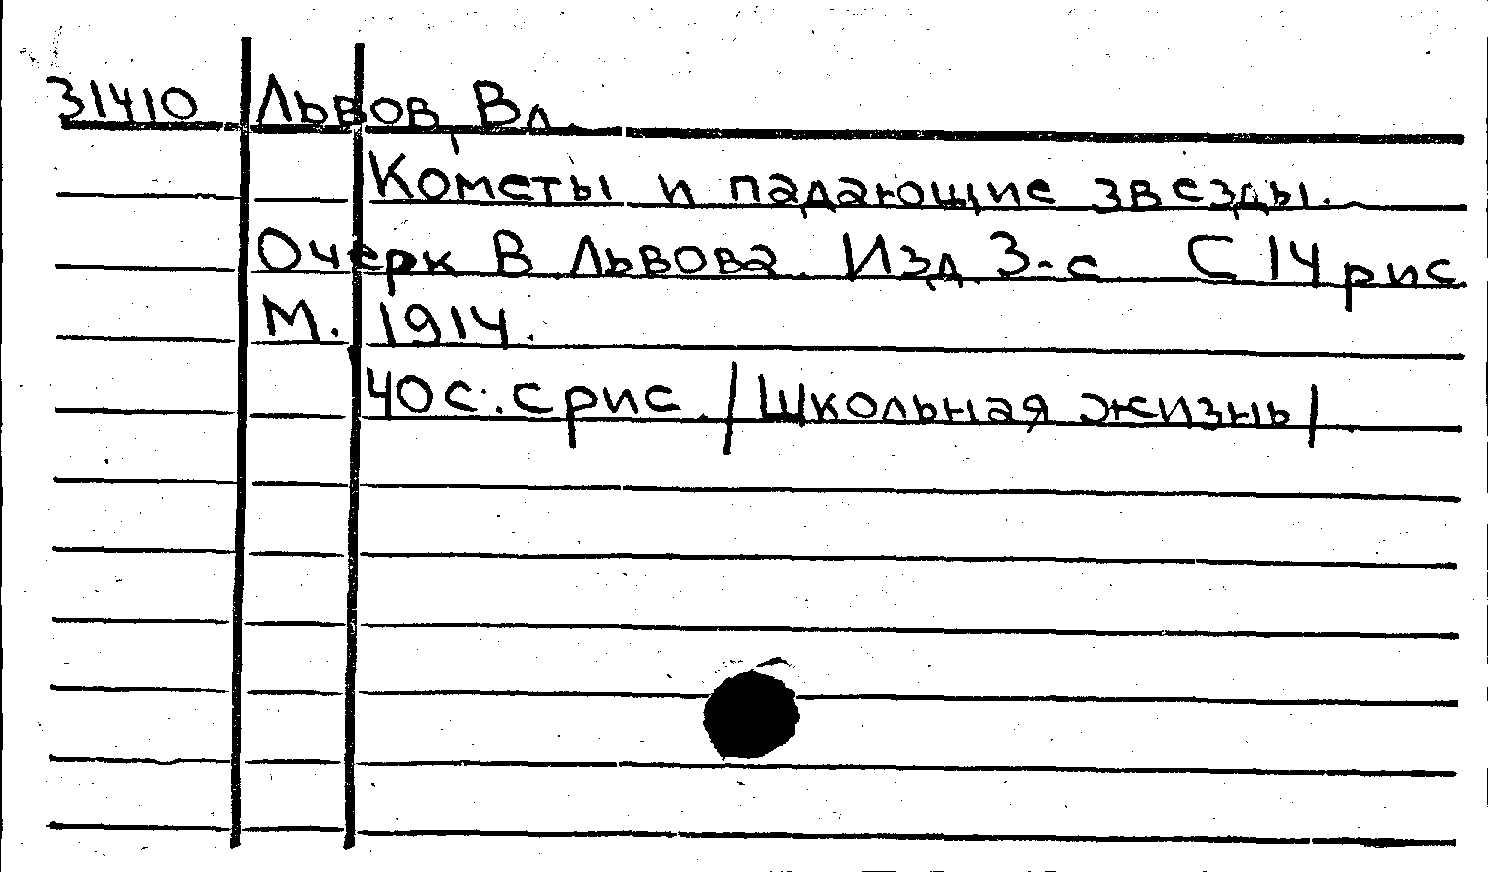 31410 Львов, Вл.
Кометы и падающие звезды.
Очерк В Львова. Изд 3-е С 14 рис
М. 1914.
40 с. с рис. /Школьная жизнь/